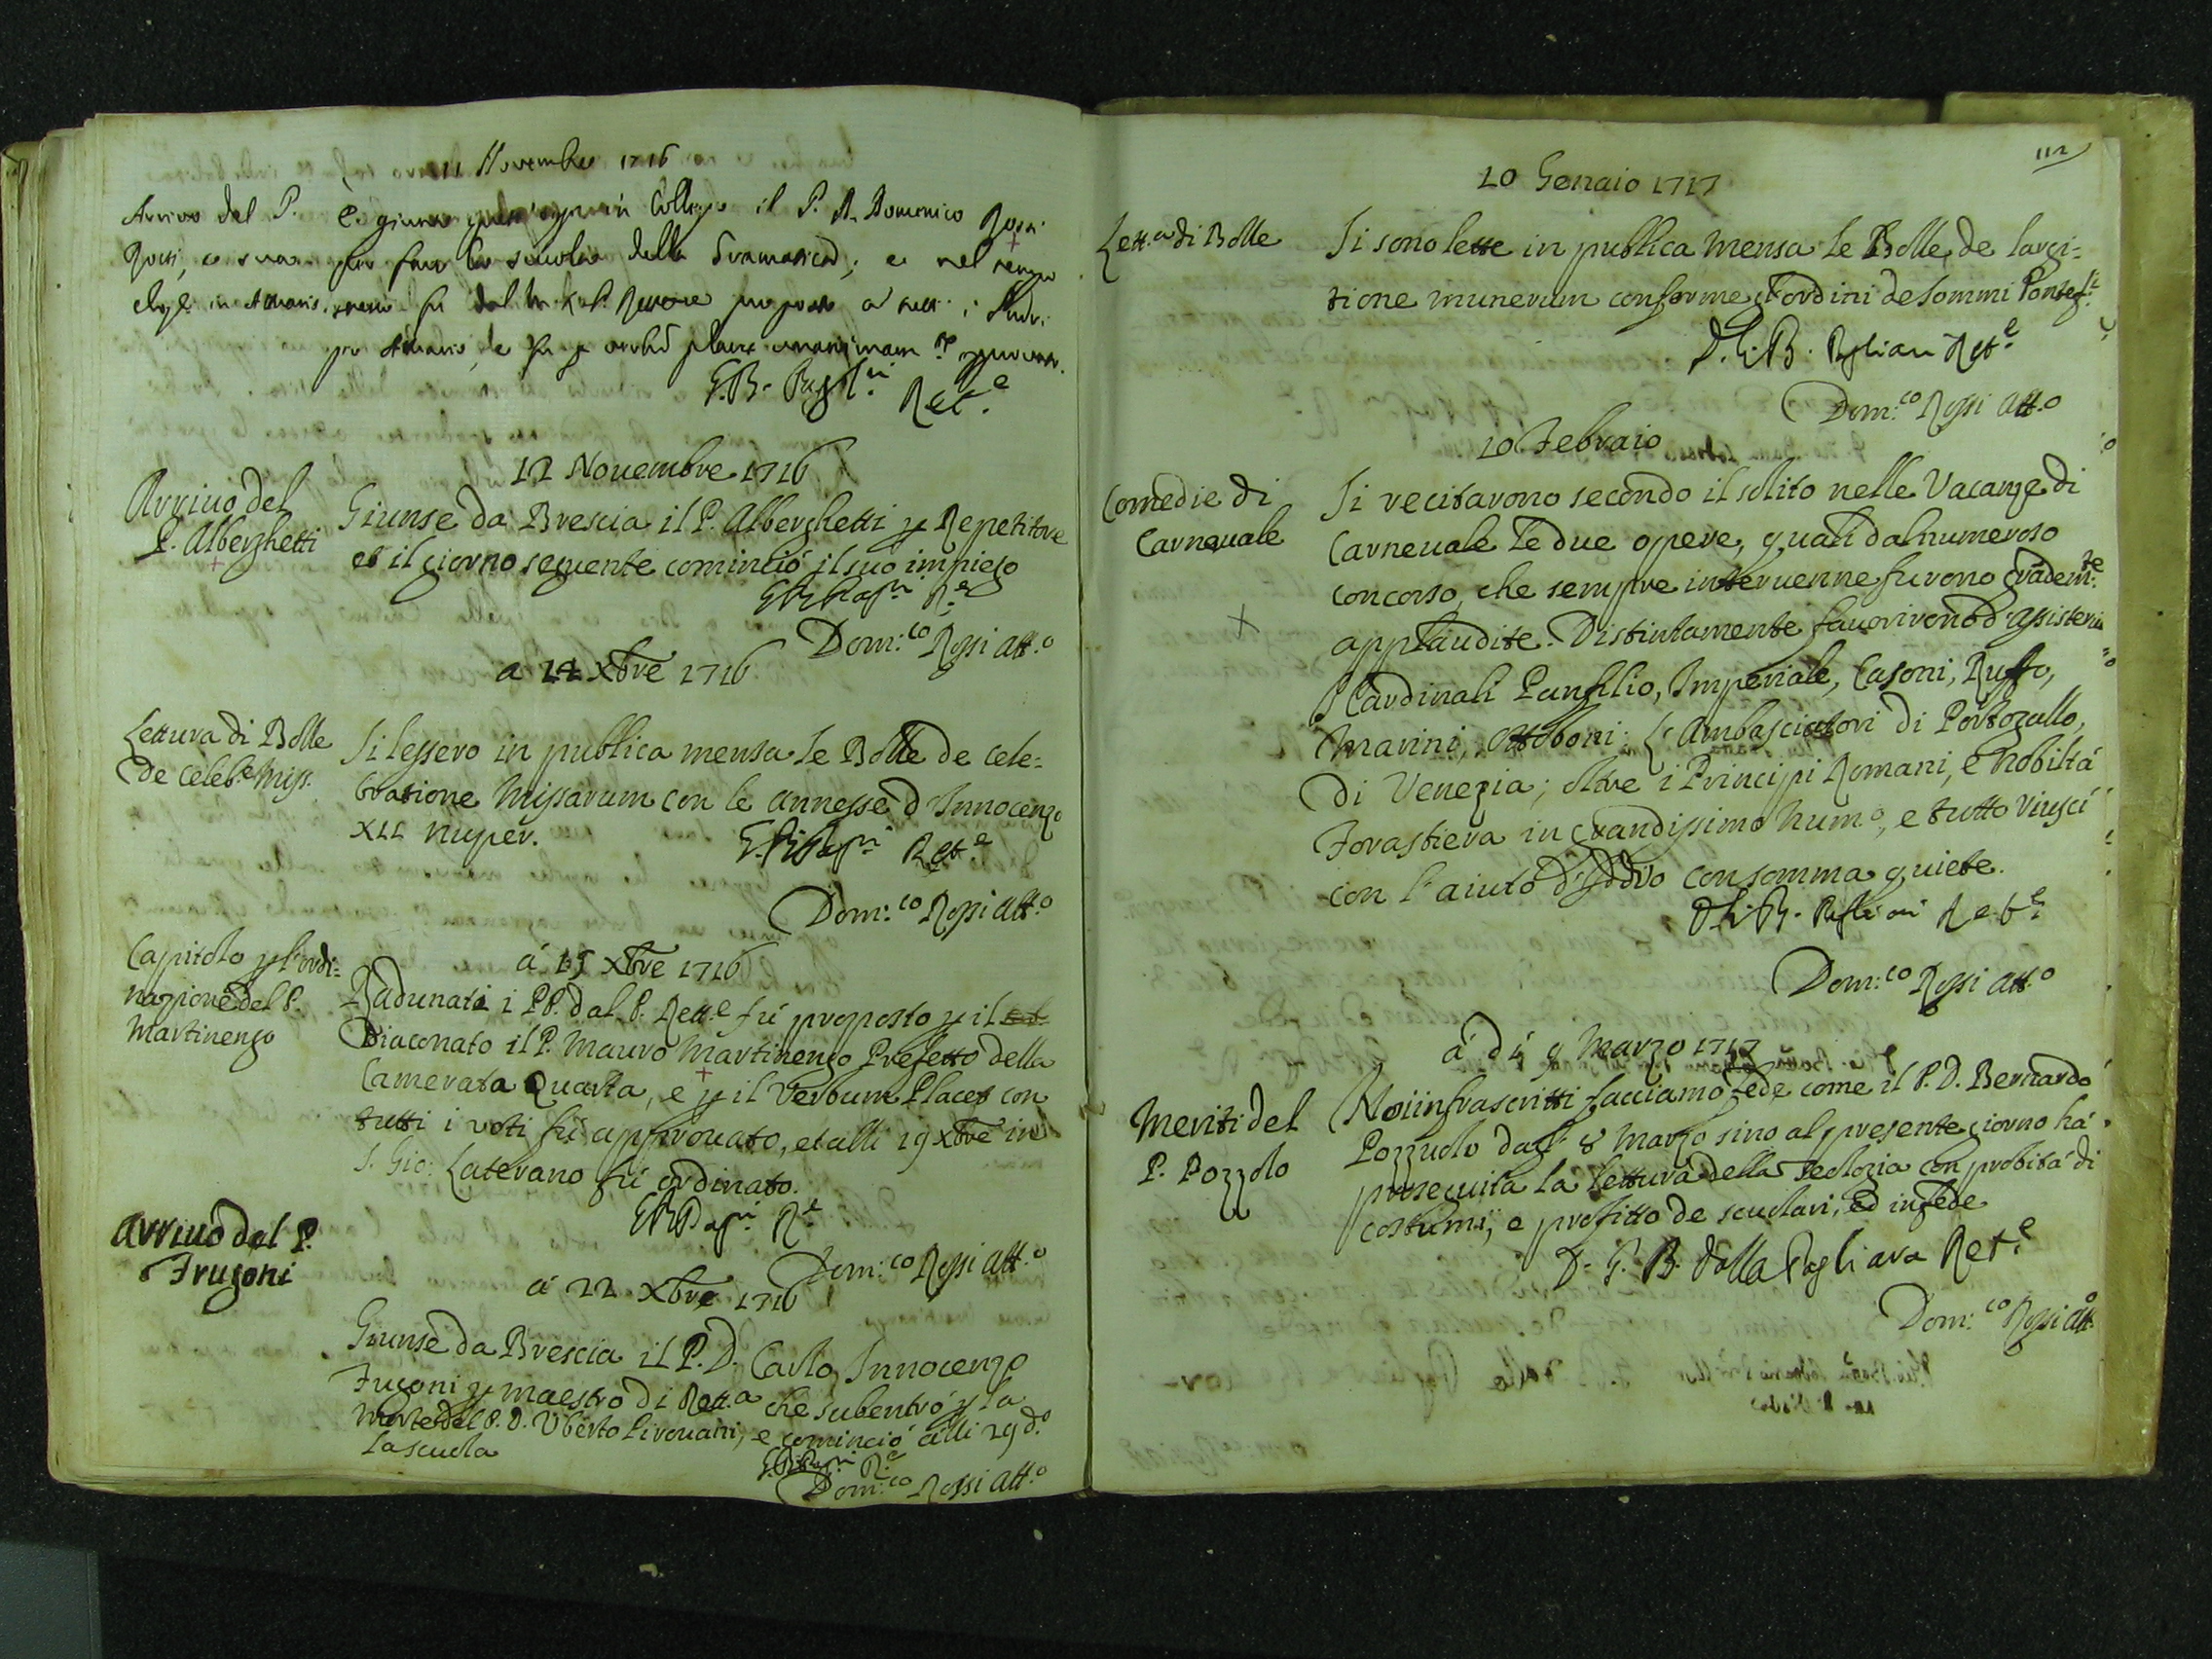 11 Novembre 1716
Arrivo del P.
Rossi, e sua
elez.e in Attuario.
È giunto quest'oggi in Collegio il P. D. Domenico Rossi
per fare la scuola della Gramatica; e nel tempo
stesso fu dal M. R. P. Rettore proposto a tutti i Padri
per Attuario, e fu approvato.
G. B. Pagl.ri Ret.e
12 Nouembre 1716
Arriuo del
P. Alberghetti
Giunse da Brescia il P. Alberghetti p Repetitore
et il giorno seguente cominciò il suo impiego
R.e
Dom:co Rossi Att.o
a 14 Xbre 1716
Lettura di Bolle
De Celeb.e Miss.
Si lessero in publica mensa le Bolle de Cele=
bratione Missarum con le annesse d'Innocenzo
XII nuper.
Ret.e
Dom:co Rossi Att.o
Capitolo p l'ordi=
nazione del P.
Martinengo
á 15 Xbre 1716
Radunati i PP. dal P. Rett.e fú proposto p il
Diaconato il P. Mauro Martinengo Prefetto della
Camerata Quarta, e p il Verbum Placet con
tutti i voti fú approuato, et alli 19 Xbre in
S. Gio: Laterano fú ordinato.
R.e
Dom:co Rossi Att.o
Arriuo del P.
Frugoni
á 22 Xbre 1716
Giunse da Brescia il P. D. Carlo Innocenzo
Frugoni p maestro di Rett.a che subentrò p la
morte del P. D. Uberto Pirouani, e cominció alli 29 d.o
la scuola
R.e
Dom:co Rossi Att.o
112
10 Genaio 1717
Lett.a di Bolle
Si sono lette in publica mensa le Bolle de largi=
tione munerum conforme gl'ordini de Sommi Pontef.ci
D. G. B. Pagliari Ret.e
Dom:co Rossi Att.o
10 Febraio
Comedie di
Carneuale
Si recitarono secondo il solito nelle Vacanze di
Carneuale le due opere, quali dal numeroso
concorso, che sempre interuenne furono grãdem:te
applaudite. Distintamente fauorirono d'assisterui
i Cardinali Panfilio, Imperiale, Casoni, Ruffo,
Marini, Ottoboni: L'Ambasciatori di Portogallo,
di Venezia; oltre i Principi Romani, e Nobiltá
Forastiera in grandissimo num.o, e tutto riuscí
con l'aiuto d'Iddio con somma quiete.
D. G. B. Pagliari Ret.e
Dom:co Rossi Att.o
á dí 9 Marzo 1717
Meriti del
P. Pozzolo
Noi infrascritti facciamo fede come il P. D. Bernardo
Pozzuolo dall' 8 Marzo sino al presente giorno há
proseguita la lettura della Teologia con probitá di
costumi, e profitto de scuolari, ed in fede
D. G. B. dalla Pagliara Ret.e
Dom:co Rossi Att.o